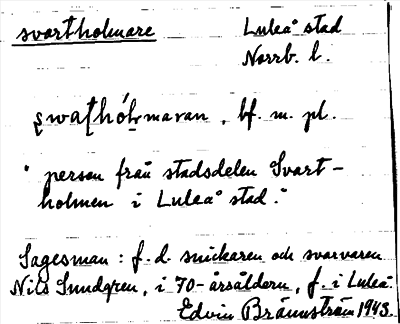 svartholmare
Luleå stad
Norrb. l.
bf. m. pl.
"person från stadsdelen Svart-
holmen i Luleå stad."
Sagesman: f.d. snickaren och svarvaren
Nils Sundgren, i 70-årsåldern, f. i Luleå.
Edvin Brännström 1943.